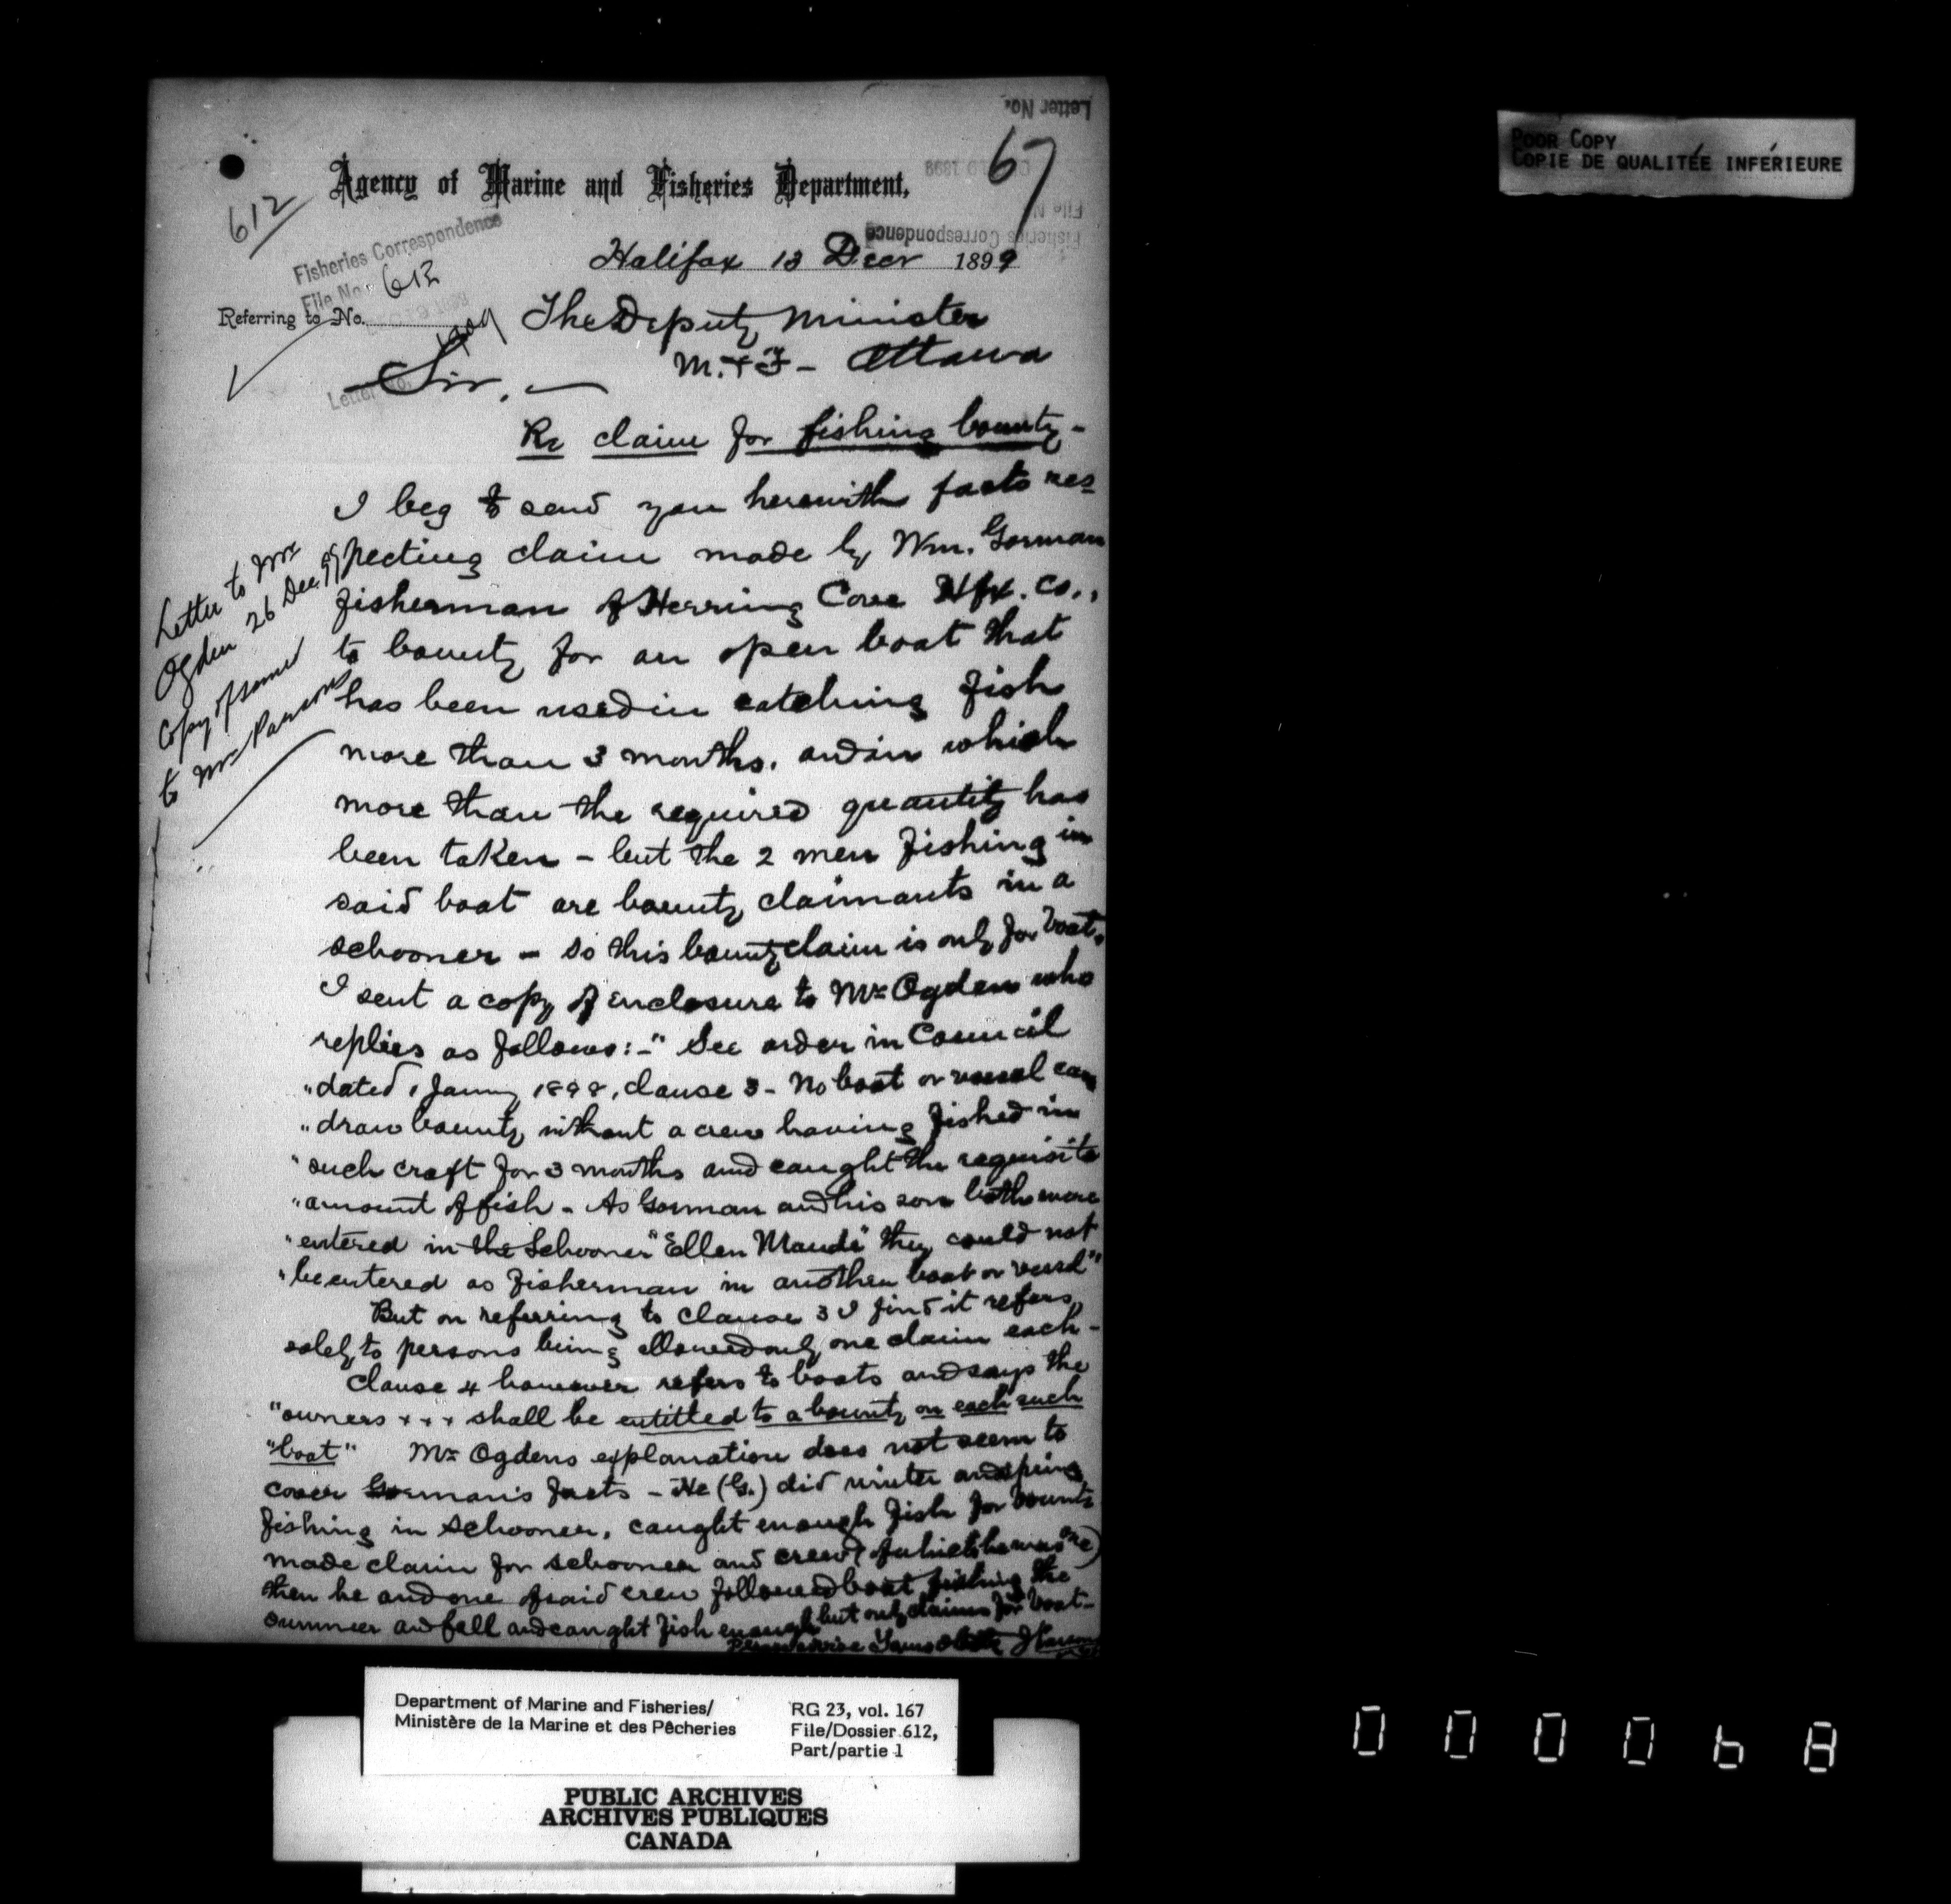 Letter No.
67
Agency of Marine and Fisheries Department,
612
Fisheries Correspondence
File No. 612
Fisheries Correspondence
File No
Halifax 13 Decr 1899
Referring to No.
The Deputy Minister
M. & F - Ottawa
Letter No.
Sir, -
Re claim for fishing bounty -
I beg to send you herewith facts res
pecting claim made by Wm. Gorman
fisherman of Herring Cove Hfx. Co.,
to bounty for an open boat that
has been used in catching fish
more than 3 months, and in which
more than the required quantity has
been taken - but the 2 men fishing in
said boat are bounty claimants in a
schooner - so this bounty claim is only for boat.
I sent a copy of enclosure to Mr Ogden who
replies as follows:- "See order in Council
"dated 1 Janny 1898, clause 3 - No boat or vessel can
"draw bounty without a crew having fished in
"such craft for 3 months and caught the requisite
"amount of fish - As Gorman and his son both were
"entered in the Schooner "Ellen Maude" they could not
"be entered as fisherman in another boat or vessel"
But on referring to Clause 3 I find it refers
solely to persons being allowed only one claim each -
Clause 4 however refers to boats and says the
"owners + + + shall be entitled to a bounty on each such
"boat" Mr Ogdens explanation does not seem to
cover Gorman's facts - He (G.) did winter and spring
fishing in schooner, caught enough fish for bounty
made claim for schooner and crew (of which he was one)
then he and one of said crew followed boat fishing the
summer and fall and caught fish enough but only claims for boat -
Letter to Mr
Ogden 26 Dec 99
Copy of same
to Mr Parsons
POOR COPY
COPIE DE QUALITÉE INFÉRIEURE
Department of Marine and Fisheries/
Ministère de la Marine et des Pêcheries
RG 23, vol. 167
File/Dossier 612,
Part/partie 1
PUBLIC ARCHIVES
ARCHIVES PUBLIQUES
CANADA
000068